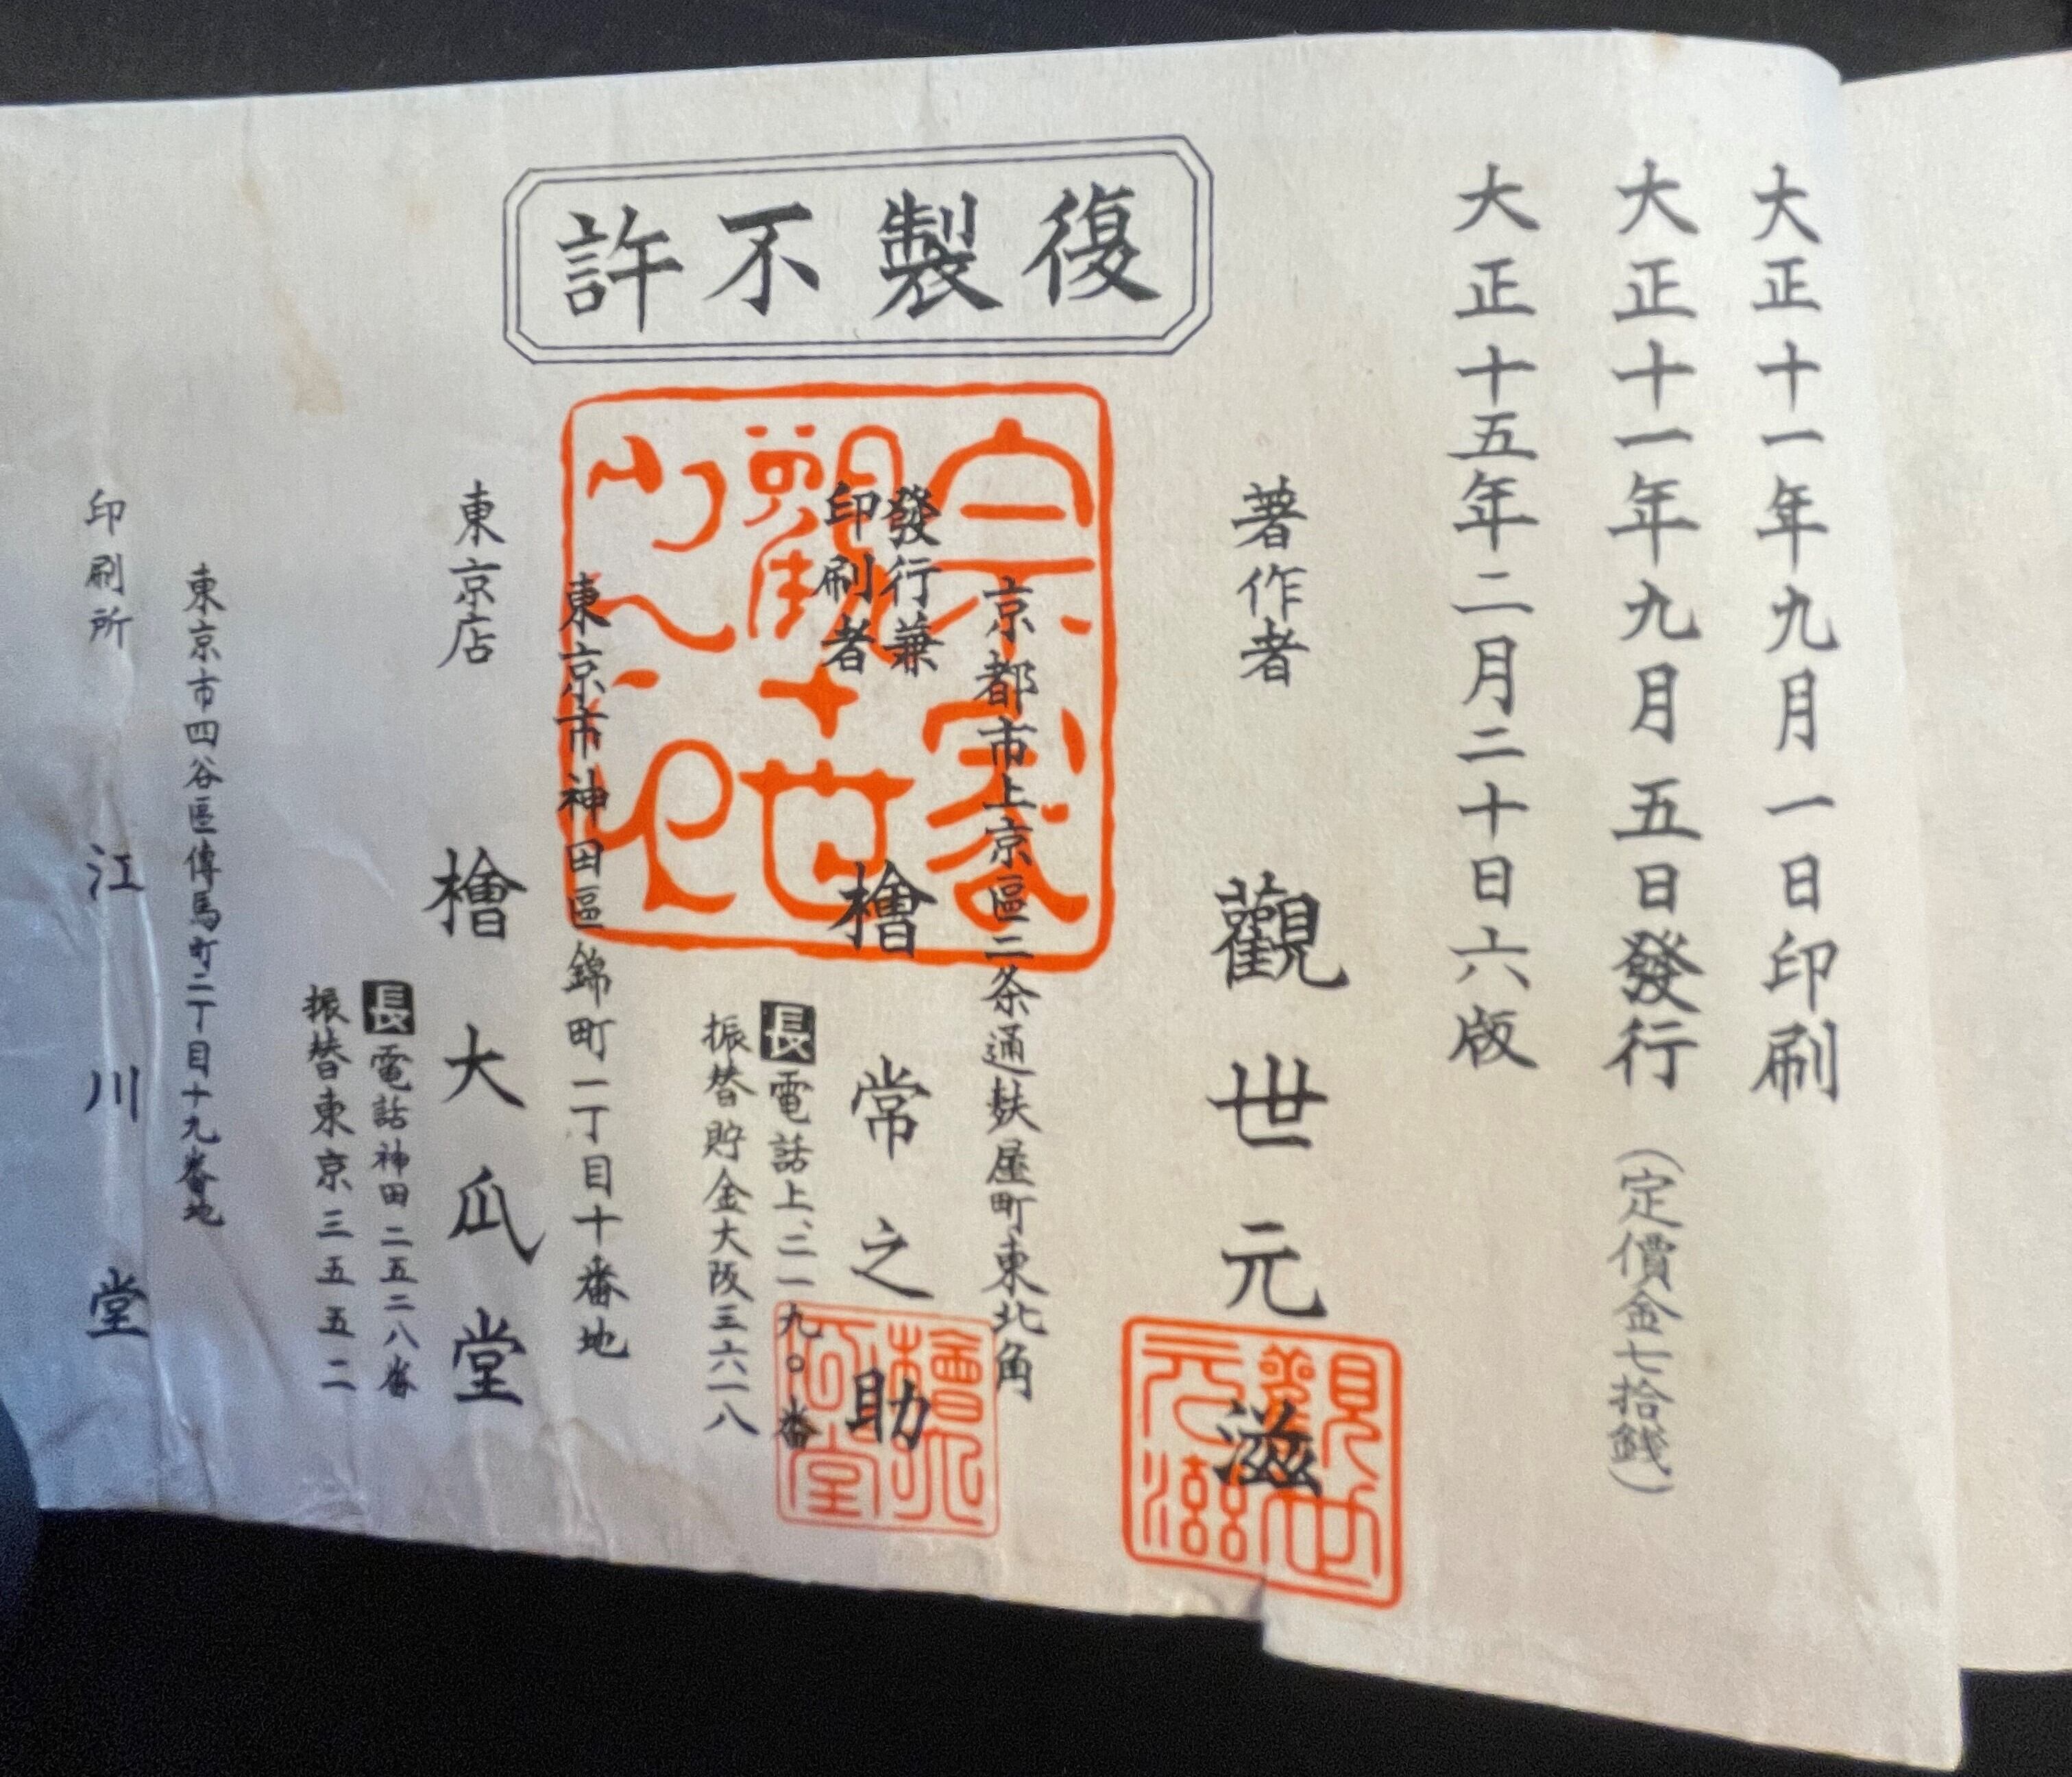 大正十一年九月一日印刷
大正十一年九月五日發行
(定價金七拾錢)
大正十五年二月二十日六版
復製不許
著作者
觀世元滋
觀世元滋
京都市上京區二条通麩屋町東北角
發行兼
印刷者
檜常之助
長電話上、二一九〇番
振替貯金大阪三六一八
宗家
觀世
東京市神田區錦町一丁目十番地
東京店
檜大瓜堂
長電話神田二五二八番
振替東京三五五二
東京市四谷區傳馬町二丁目十九番地
印刷所
江川堂